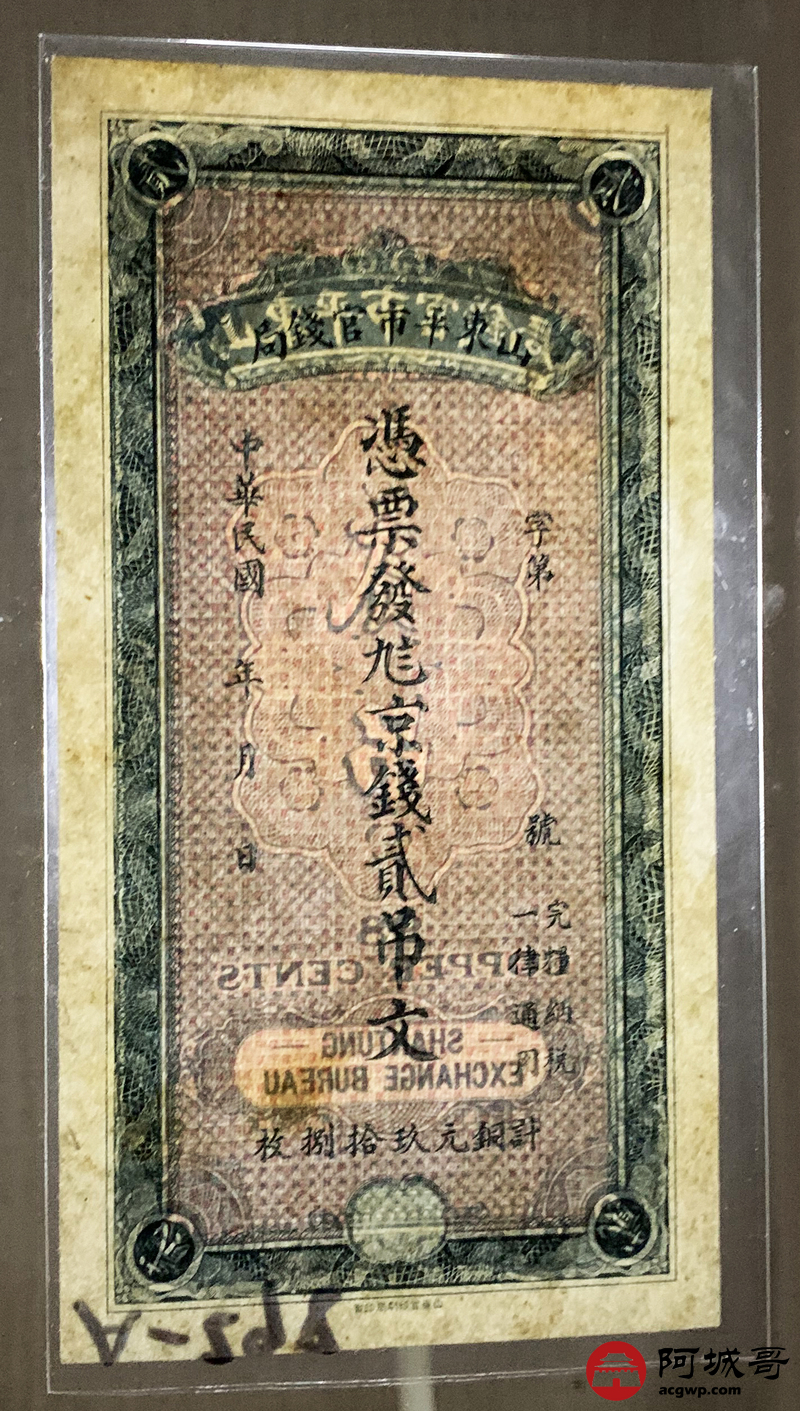 貳
貳
山東平市官錢局
字第 號
完糧納税
一律通用
憑票發兌京錢貳吊文
中華民國 年 月 日
COPPER CENTS
SHANTUNG
EXCHANGE BUREAU
計銅元玖拾捌枚
A-262
阿城哥
acgwp.com